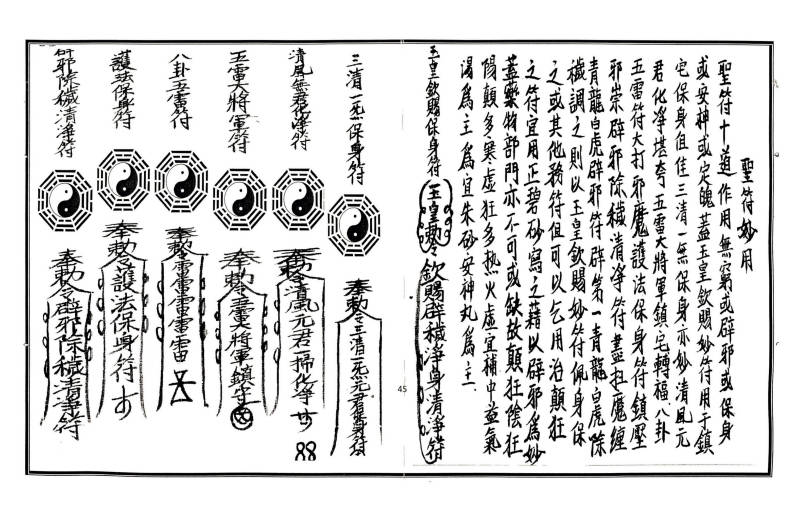 聖符妙用
聖符十道作用無窮或辟邪或保身
或安神或定魄蓋玉皇欽賜妙符用于鎮
宅保身但佳三清一炁保身亦妙清風元
君化淨堪夸五雷大將軍鎮宅轉福八卦
五雷符大打邪魔護法保身符鎮壓
邪祟辟邪除穢清淨符盡扫魔纏
青龍白虎辟邪符辟第一青龍白虎除
穢調之則以玉皇欽賜妙符佩身保
之或其他務符但可以乞用治顛狂
之符宜用正碧砂寫之藉以辟邪為妙
蓋藥物部門亦不可或缺故顛狂陰狂
陽顛多寒虛狂多热火虛宜補中益氣
湯為主為宜朱砂安神丸為主
玉皇欽賜保身符
玉皇勅令欽賜辟穢淨身清淨符
45
三清一炁保身符
奉勅令三清一炁元君保身符
清風無君化淨符
奉勅令清風元君一掃化淨
五雷大將軍符
奉勅令五雷大將軍鎮宅
八卦五雷符
奉勅令雷雷雷雷雷
護法保身符
奉勅令護法保身符
辟邪除穢清淨符
奉勅令辟邪除穢清淨符